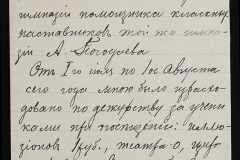 гимназіи помощника классныхъ
наставниковъ той же гимна-
зіи А. Погодаева
Отъ 1го мая по 1ое Августа
сего года мною было израсхо-
довано по дежурству за учени-
ками при посѣщеніи: иллю-
зіоновъ 1 руб., театра 0,